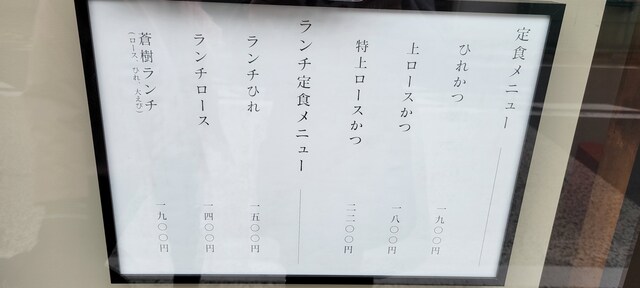 定食メニュー
ひれかつ 一九〇〇円
上ロースかつ 一八〇〇円
特上ロースかつ 二二〇〇円
ランチ定食メニュー
ランチひれ 一五〇〇円
ランチロース 一四〇〇円
蒼樹ランチ 一九〇〇円
(ロース、ひれ、大えび)